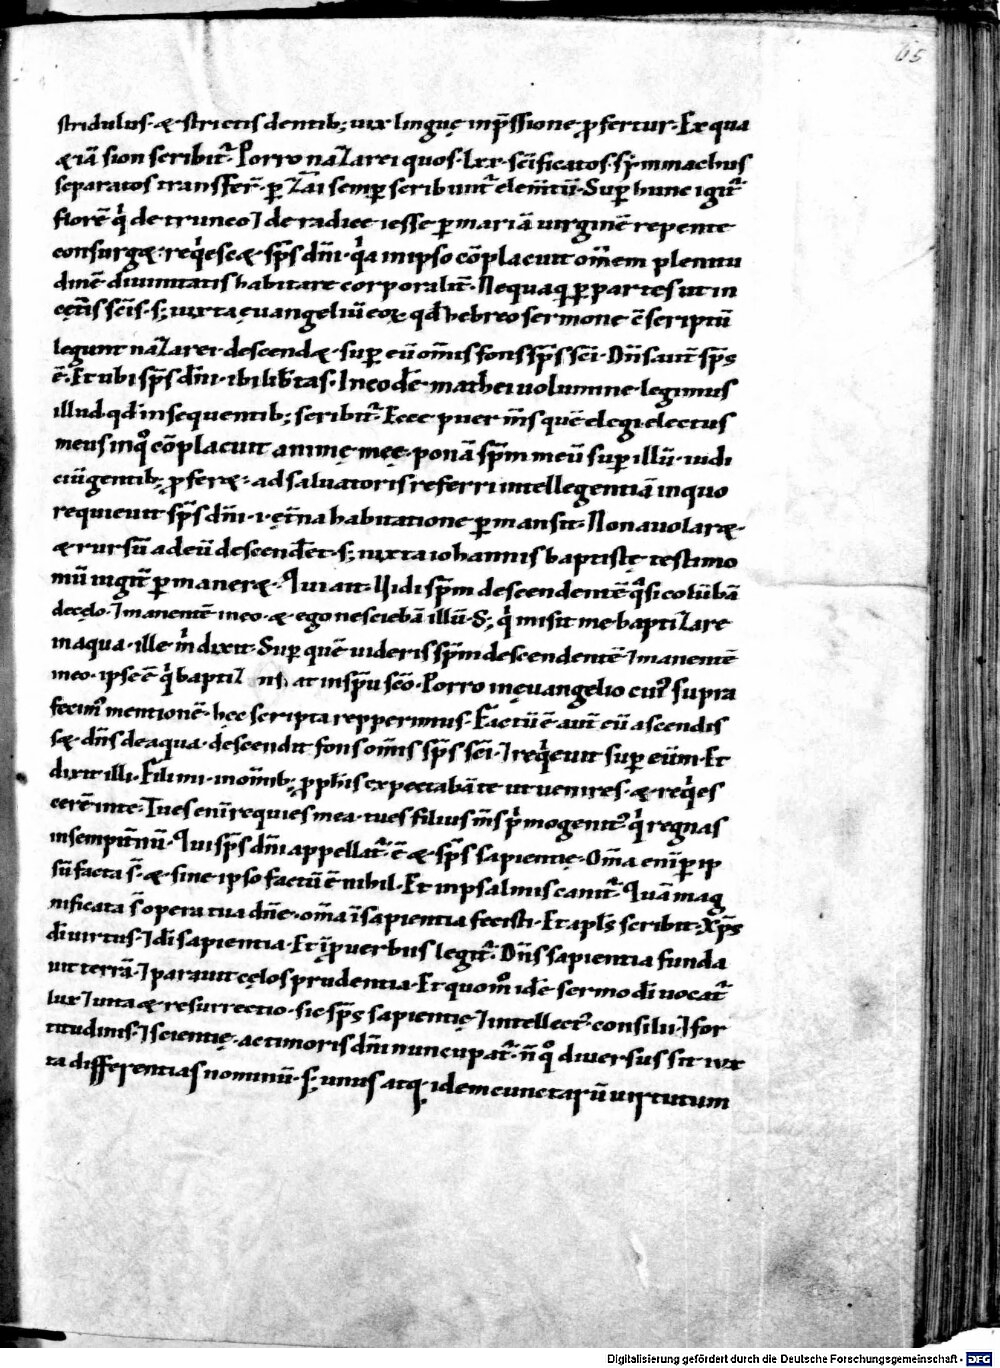 65
stridulus· & strictis dentib; uix linguę inp̄ssione ꝓfertur· Ex qua
& iā sion scribit᷑· Porro nazarei quos· lxx· sc̄ificatos· symmachus
separatos transfer̄· ꝑ zai semꝑ scribunt᷑ elem̄tū· Suꝑ hunc igit᷑
florē qͥ de trunco ⁊ de radice iesse ꝑ mariā uirginē repente
consurg&· reqͥesc& sp̄s dn̄i· qͥa in ipso cōplacuit om̄em plenitu
dinē diuinitatis habitare corporalit̄· Nequaqͣ ꝑ partes ut in
cęt̄is sc̄is· s; iuxta euangeliū eoꝝ qd̄ hebreo sermone ē scriptū
legunt nazarei· descend& suꝑ eū om̄is fons sp̄s sc̄i· Dn̄s aut̄ sp̄s
ē· Et ubi sp̄s dn̄i· ibi lib̄tas· In eodē mathei uolumine legimus
illud qd̄ in sequentib; scribit᷑· Ecce puer m̄s quē elegi electus
meus in qͦ cōplacuit animę męę· ponā sp̄m meū suꝑ illū· iudi
ciū gentib; ꝓfer&· ad saluatoris referri intellegentiā in quo
requieuit sp̄s dn̄i· i· ęt̄na habitatione ꝑmansit· Non auolar&·
& rursū ad eū descender̄et· s; iuxta iohannis baptistę testimo
niū iugit̄ ꝑmaner&· Qui ait· Uidi sp̄m descendentē qͣsi colūbā
de cęlo· ⁊ manentē in eo· & ego nesciebā illū· S; qͥ misit me baptizare
in aqua· ille m̄ dixit· Suꝑ quē uideris sp̄m descendentē ⁊ manentē
in eo· ipse ē qͥ baptiz at in sp̄u sc̄o· Porro in euangelio cui᷒ supra
fecim᷒ mentionē· hec scripta repperimus· Factū ē aut̄ cū ascendis
s& dn̄s de aqua· descendit fons om̄is sp̄s sc̄i· ⁊ reqͥeuit suꝑ eūm· Et
dixit illi· Fili mi· in om̄ib; ꝓphis expectabā te ut uenires· & reqͥes
cerē in te· Tu es enī requies mea· tu es filius m̄s pͥmogenit᷒ qͥ regnas
in sempit̄nū· Qui sp̄s dn̄i appellat᷑· ē & sp̄s sapientię· Om̄a enī ꝑ ip
sū facta s̄· & sine ipso factū ē nihil· Et in psalmis canit᷑· Quā mag
nificata s̄ opera tua dn̄e· om̄a ī sapientia fecisti· Et apl̄s scribit· Xp̄s
dī uirtus· ⁊ dī sapientia· Et ī ꝓuerbiis legit᷑· Dn̄s sapientia funda
uit terrā· ⁊ parauit cęlos prudentia· Et quom̊ idē sermo dī uocat᷑
lux ⁊ uita & resurrectio· sic sp̄s sapientię ⁊ intellect᷒· consilii ⁊ for
titudinis· ⁊ scientię· ac timoris dn̄i nuncupat᷑· n̄ qͦ diuersus sit iux
ta differentias nominū· s; unus atq; idem cunctarū uirtutum
Digitalisierung gefördert durch die Deutsche Forschungsgemeinschaft - DFG